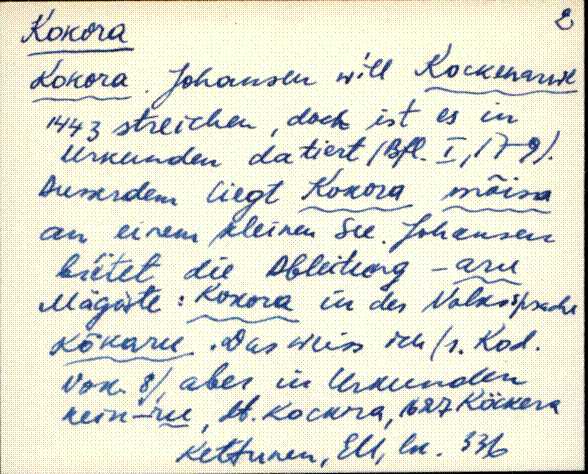 Kokora 2
Kokora. Johansen will Kockenarwe
1443 streichen, doch ist es in
Urkunden datiert (Bfl. I, 179).
Ausserdem liegt Kokora mõisa
an einem kleinen See. Johansen
bietet die Ableitung -aru
Mägiste: Kokora in der Volkssprache
Kõkaru. Das weiss ich (s. Kod.
Vok. 8), aber in Urkunden
kein -ru, dt. Kockra, 1627 Köckera
Kettunen, EU, ln. 336